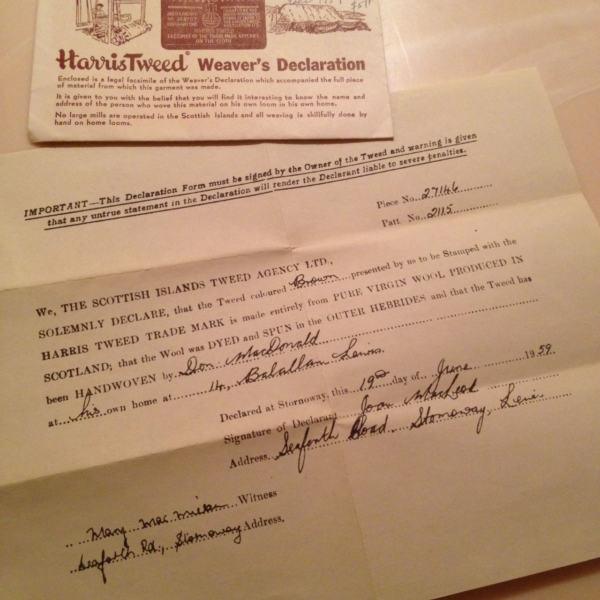 Harris Tweed® Weaver's Declaration
Enclosed is a legal facsimile of the Weaver's Declaration which accompanied the full piece
of material from which this garment was made.
It is given to you with the belief that you will find it interesting to know the name and
address of the person who wove this material on his own loom in his own home.
No large mills are operated in the Scottish Islands and all weaving is skillfully done by
hand on home looms.
IMPORTANT—This Declaration Form must be signed by the Owner of the Tweed and warning is given
that any untrue statement in the Declaration will render the Declarant liable to severe penalties.
Piece No. 27146
Patt. No. 2115
We, THE SCOTTISH ISLANDS TWEED AGENCY LTD.,
SOLEMNLY DECLARE, that the Tweed coloured Brown presented by us to be Stamped with the
HARRIS TWEED TRADE MARK is made entirely from PURE VIRGIN WOOL PRODUCED IN
SCOTLAND; that the Wool was DYED and SPUN in the OUTER HEBRIDES and that the Tweed has
been HANDWOVEN by Don MacDonald
at his own home at 14, Balallan Lewis.
Declared at Stornoway, this 19th day of June 1959.
Signature of Declarant Joan MacLeod
Address. Seaforth Road, Stornoway, Lewis
Mary Mac Witness
Seaforth Rd., Stornoway Address.